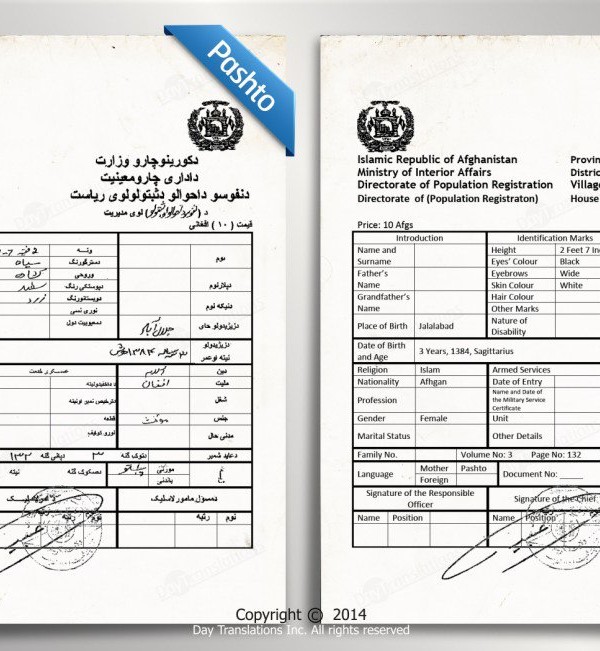 Pashto
دکورینوچارو وزارت
داداری چارومعینیت
دنفوسو داحوالو دثبتولولوی ریاست
لوی مدیریت
قیمت ( ۱۰ ) افغانی
ونـه
دسترگورنگ سیاه
وروځی
دپوستکی رنگ سفید
دویښتانورنگ
نوری نښی
دمعیوبیت ډول
نوم
دپلارنوم
دنیکه نوم
دزیږیدولو ځای جلال آباد
دزیږیدولو
نیټه اوعمر
دین اسلام
ملیت افغان
شغل
جنس مونث
مدنی حال
عسکری خدمت
قطعه
دپاڼی گڼه ۱۳۲
دټوک گڼه ۳
مورنی پښتو
باندنی
دصکوک گڼه
نیټه
دمسوول مامور لاسلیک
نوم رتبه
نوم رتبه
Islamic Republic of Afghanistan
Ministry of Interior Affairs
Directorate of Population Registration
Directorate of (Population Registraton)
Provin
Distric
Village
House
Price: 10 Afgs
Introduction Identification Marks
Name and Surname Height 2 Feet 7 In
Eyes' Colour Black
Father's Name Eyebrows Wide
Skin Colour White
Grandfather's Name Hair Colour
Other Marks
Place of Birth Jalalabad Nature of Disability
Date of Birth and Age 3 Years, 1384, Sagittarius
Religion Islam Armed Services
Nationality Afhgan Date of Entry
Profession Name and Date of the Military Service Certificate
Gender Female Unit
Marital Status Other Details
Family No. Volume No: 3 Page No: 132
Language Mother Pashto Document No: _____
Foreign
Signature of the Responsible Officer Signature of the Chief
Name Position Name Position
Copyright © 2014
Day Translations Inc. All rights reserved